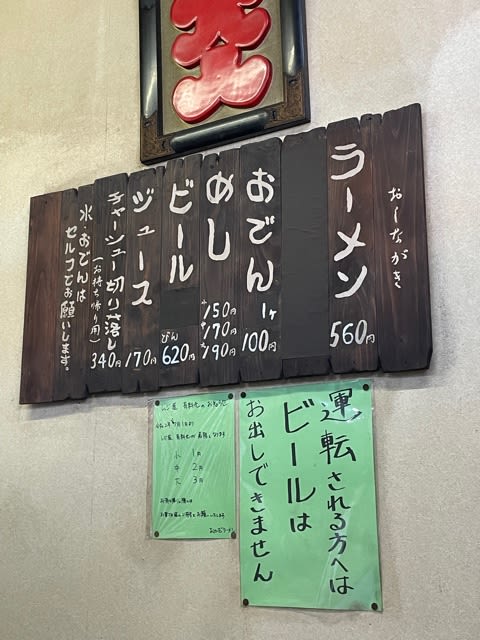 おしながき
ラーメン 560円
おでん 1ケ 100円
めし 小150円 中170円 大190円
ビール びん 620円
ジュース 170円
チャーシュー切り落し(お持ち帰り用) 340円
水・おでんは
セルフでお願いします。
運転される方へは
ビールは
お出しできません
レジ袋 有料化のお知らせ
小 1円
中 2円
大 3円